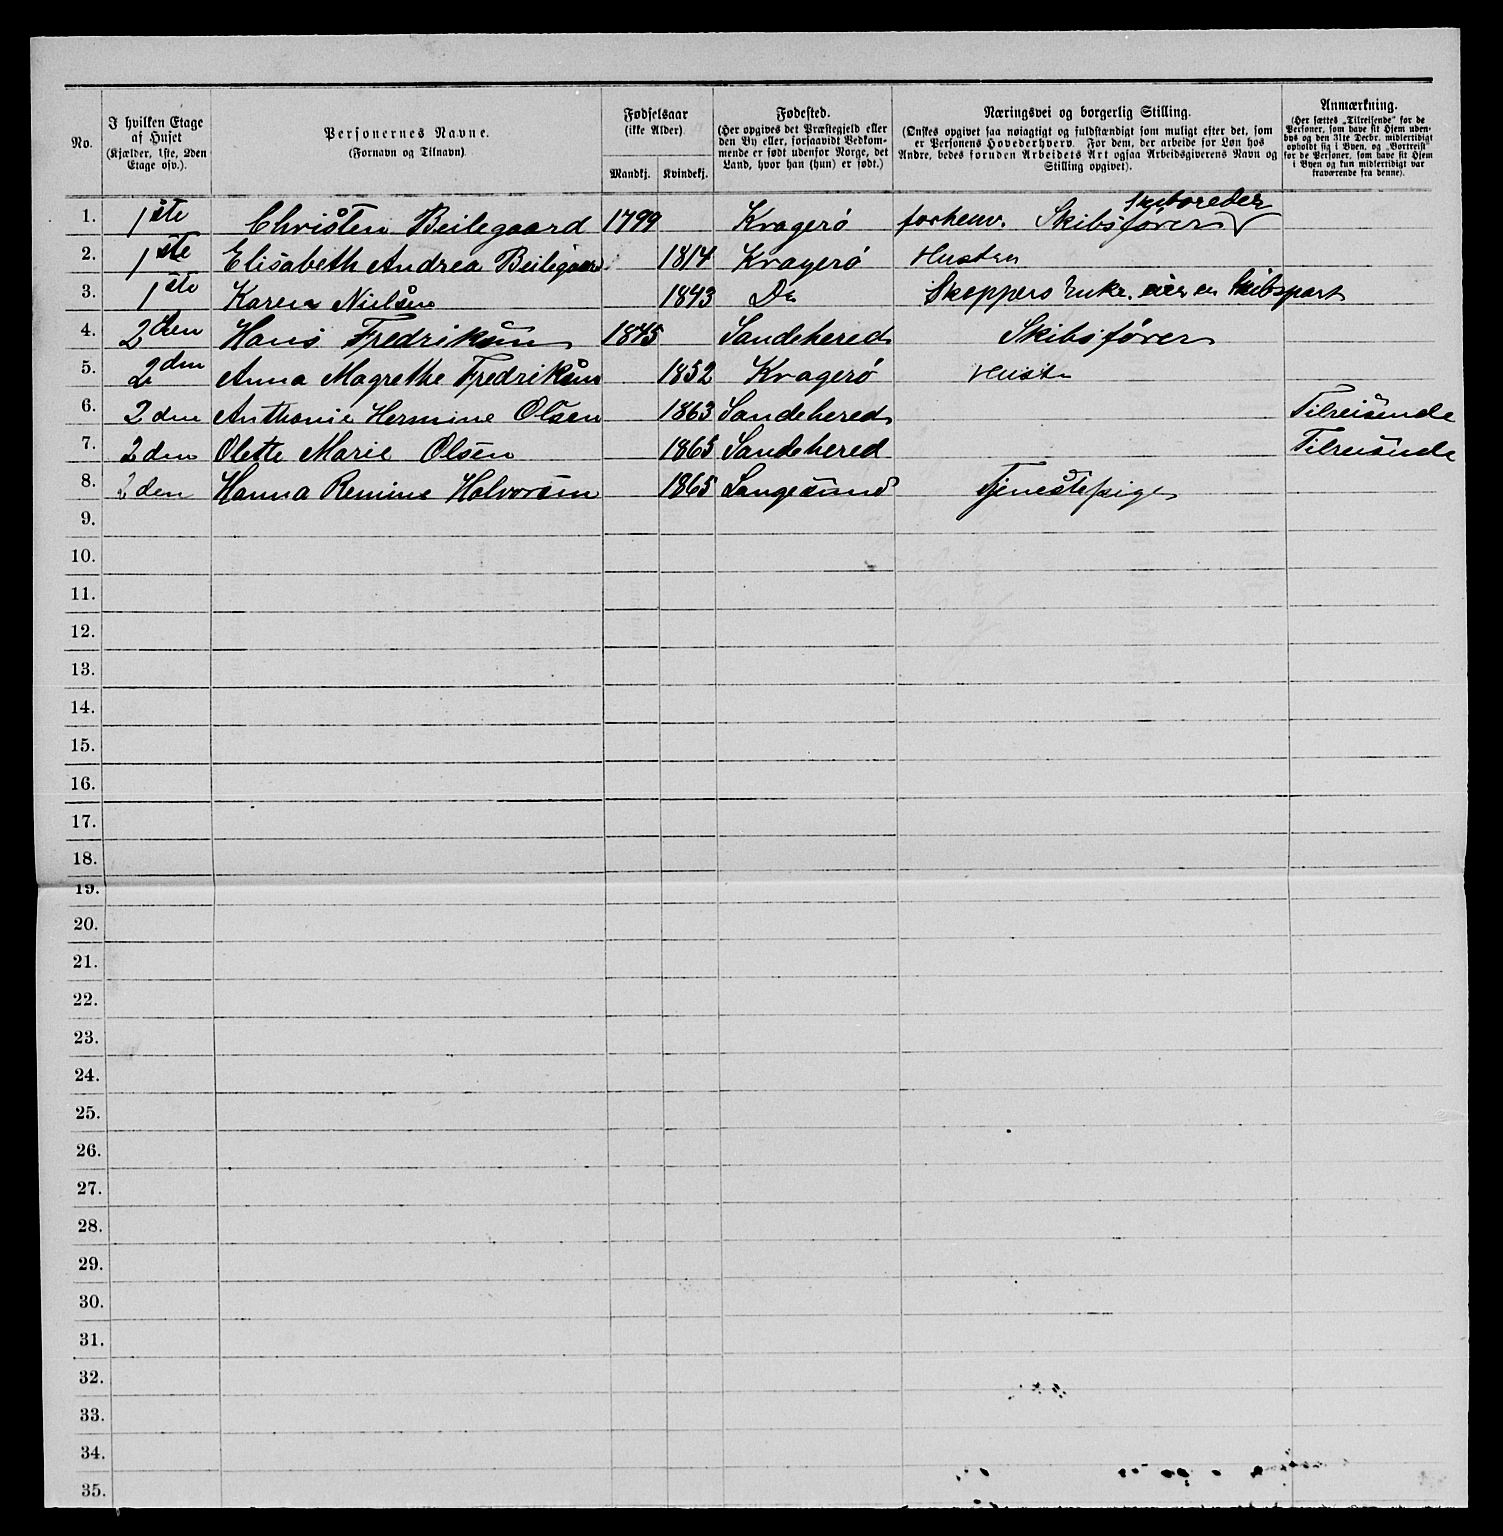 No.
I hvilken Etage af Huset (Kjælder, 1ste, 2den Etage osv.).
Personernes Navne. (Fornavn og Tilnavn)
Fødselsaar (ikke Alder)
Mandkj. Kvindekj.
Fødested. (Her opgives det Præstegjeld eller den By eller, forsaavidt Vedkommende er født udenfor Norge, det Land, hvor han (hun) er født.)
Næringsvei og borgerlig Stilling. (Ønskes opgivet saa nøiagtigt og fuldstændigt som muligt efter det, som er Personens Hovederhverv. For dem, der arbeide for Løn hos Andre, bedes foruden Arbeidets Art ogsaa Arbeidsgiverens Navn og Stilling opgivet).
Anmærkning. (Her sættes „Tilreisende" for de Personer, som have sit Hjem udenbys og den 31te Decbr. midlertidigt opholdt sig i Byen, og „Bortreist" for de Personer, som have sit Hjem i Byen og kun midlertidigt var fraværende fra denne).
Skibsreder
1. 1ste Christen Beilegaard 1799 Kragerö forhenv. Skibsförer
2. 1ste Elisabeth Andrea Beilegaard 1814 Kragerö Husten
3. 1ste Karen Nielsen 1843 Do Skeppers Enke. eier en Skibspart
4. 2den Hans Fredriksen 1845 Sandehered Skibsförer
5. 2den Anna Magrethe Fredriksen 1852 Kragerö Hust
6. 2den Anthonie Hermine Olsen 1863 Sandehered Tilreisende
7. 2den Olette Marie Olsen 1865 Sandehered Tilreisende
8. 2den Hanna Remine Halvorsen 1865 Langesund Tjenestepige
9.
10.
11.
12.
13.
14.
15.
16.
17.
18.
19.
20.
21.
22.
23.
24.
25.
26.
27.
28.
29.
30.
31.
32.
33.
34.
35.